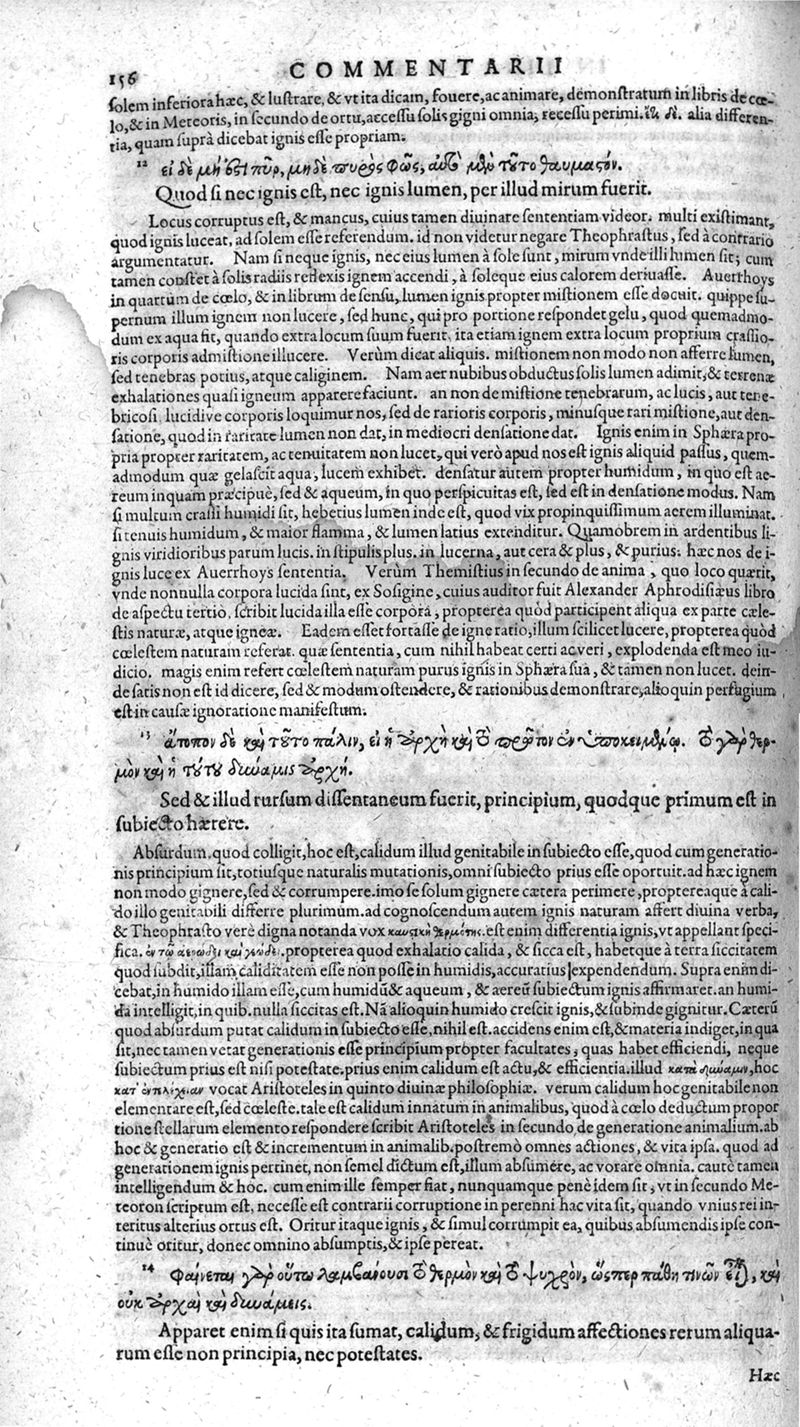 156 COMMENTARII
solem inferiora hæc, & lustrare, & vt ita dicam, fouere, ac animare, demonstratum in libris de cœ-
lo, & in Meteoris, in secundo de ortu, accessu solis gigni omnia, recessu perimi. ἔτι δὲ. alia differen-
tia, quam suprà dicebat ignis esse propriam.
12 εἰ δὲ μή ἐστι πῦρ, μηδὲ πυρὸς φῶς, αὐτὸ μὲν τοῦτο θαυμαστόν.
Quod si nec ignis est, nec ignis lumen, per illud mirum fuerit.
Locus corruptus est, & mancus, cuius tamen diuinare sententiam videor. multi existimant,
quod ignis luceat, ad solem esse referendum. id non videtur negare Theophrastus, sed à contrario
argumentatur. Nam si neque ignis, nec eius lumen à sole sunt, mirum vnde illi lumen sit; cum
tamen constet à solis radiis reflexis ignem accendi, à soleque eius calorem deriuasse. Auerrhoys
in quartum de cœlo, & in librum de sensu, lumen ignis propter mistionem esse docuit. quippe su-
pernum illum ignem non lucere, sed hunc, qui pro portione respondet gelu, quod quemadmo-
dum ex aqua fit, quando extra locum suum fuerit, ita etiam ignem extra locum proprium crassio-
ris corporis admistione illucere. Verùm dicat aliquis. mistionem non modo non afferre lumen,
sed tenebras potius, atque caliginem. Nam aer nubibus obductus solis lumen adimit, & terrenæ
exhalationes quasi igneum apparere faciunt. an non de mistione tenebrarum, ac lucis, aut tene-
bricosi, lucidive corporis loquimur nos, sed de rarioris corporis, minusque rari mistione, aut den-
satione, quod in raritate lumen non dat, in mediocri densatione dat. Ignis enim in Sphæra pro-
pria propter raritatem, ac tenuitatem non lucet, qui verò apud nos est ignis aliquid passus, quem-
admodum quæ gelascit aqua, lucem exhibet. densatur autem propter humidum, in quo est ae-
reum inquam præcipuè, sed & aqueum, in quo perspicuitas est, sed est in densatione modus. Nam
si multum crassi humidi sit, hebetius lumen inde est, quod vix propinquissimum aerem illuminat.
si tenuis humidum, & maior flamma, & lumen latius extenditur. Quamobrem in ardentibus li-
gnis viridioribus parum lucis. in stipulis plus. in lucerna, aut cera & plus, & purius. hæc nos de i-
gnis luce ex Auerrhoys sententia. Verùm Themistius in secundo de anima, quo loco quærit,
vnde nonnulla corpora lucida sint, ex Sosigine, cuius auditor fuit Alexander Aphrodisiæus libro
de aspectu tertiò, scribit lucida illa esse corpora, propterea quòd participent aliqua ex parte cæle-
stis naturæ, atque igneæ. Eadem esset fortasse de igne ratio, illum scilicet lucere, propterea quòd
cœlestem naturam referat. quæ sententia, cum nihil habeat certi ac veri, explodenda est meo iu-
dicio. magis enim refert cœlestem naturam purus ignis in Sphæra sua, & tamen non lucet. dein-
de satis non est id dicere, sed & modum ostendere, & rationibus demonstrare, alioquin perfugium
est in causæ ignoratione manifestum.
13 ἄτοπον δὲ καὶ τοῦτο πάλιν, εἰ ἡ ἀρχὴ καὶ τὸ πρῶτον ἐν ὑποκειμένῳ. τὸ γὰρ θερ-
μὸν καὶ ἡ τούτου δύναμις ἀρχή.
Sed & illud rursum dissentaneum fuerit, principium, quodque primum est in
subiecto hærere.
Absurdum. quod colligit, hoc est, calidum illud genitabile in subiecto esse, quod cum generatio-
nis principium sit, totiusque naturalis mutationis, omni subiecto prius esse oportuit. ad hæc ignem
non modo gignere, sed & corrumpere. imo se solum gignere cætera perimere, proptereaque à cali-
do illo genitabili differre plurimum. ad cognoscendum autem ignis naturam affert diuina verba,
& Theophrasto verè digna notanda vox καυστικὴ θερμότης. est enim differentia ignis, vt appellant speci-
fica. ἐν τῷ ἀτμώδει καὶ γεώδει. propterea quod exhalatio calida, & sicca est, habetque à terra siccitatem
quod subdit, illam caliditatem esse non posse in humidis, accuratius expendendum. Supra enim di-
cebat, in humido illam esse, cum humidū & aqueum, & aereū subiectum ignis affirmaret. an humi-
da intelligit, in quib. nulla siccitas est. Nā alioquin humido crescit ignis, & subinde gignitur. Cæterū
quod absurdum putat calidum in subiecto esse, nihil est. accidens enim est, & materia indiget, in qua
sit, nec tamen vetat generationis esse principium propter facultates, quas habet efficiendi, neque
subiectum prius est nisi potestate. prius enim calidum est actu, & efficientia. illud κατὰ δύναμιν, hoc
κατ' ἐντελέχειαν vocat Aristoteles in quinto diuinæ philosophiæ. verum calidum hoc genitabile non
elementare est, sed cœleste. tale est calidum innatum in animalibus, quod à cœlo deductum propor
tione stellarum elemento respondere scribit Aristoteles in secundo de generatione animalium. ab
hoc & generatio est & incrementum in animalib. postremò omnes actiones, & vita ipsa. quod ad
generationem ignis pertinet, non semel dictum est, illum absumere, ac vorare omnia. cautè tamen
intelligendum & hoc. cum enim ille semper fiat, nunquamque penè idem sit, vt in secundo Me-
teoron scriptum est, necesse est contrarii corruptione in perenni hac vita sit, quando vnius rei in-
teritus alterius ortus est. Oritur itaque ignis, & simul corrumpit ea, quibus absumendis ipse con-
tinuè oritur, donec omnino absumptis, & ipse pereat.
14 Φαίνεται γὰρ οὕτω λαμβάνουσι τὸ θερμὸν καὶ τὸ ψυχρὸν, ὥσπερ πάθη τινῶν εἶναι, καὶ
οὐκ ἀρχαὶ καὶ δυνάμεις.
Apparet enim si quis ita sumat, calidum, & frigidum affectiones rerum aliqua-
rum esse non principia, nec potestates.
Hæc